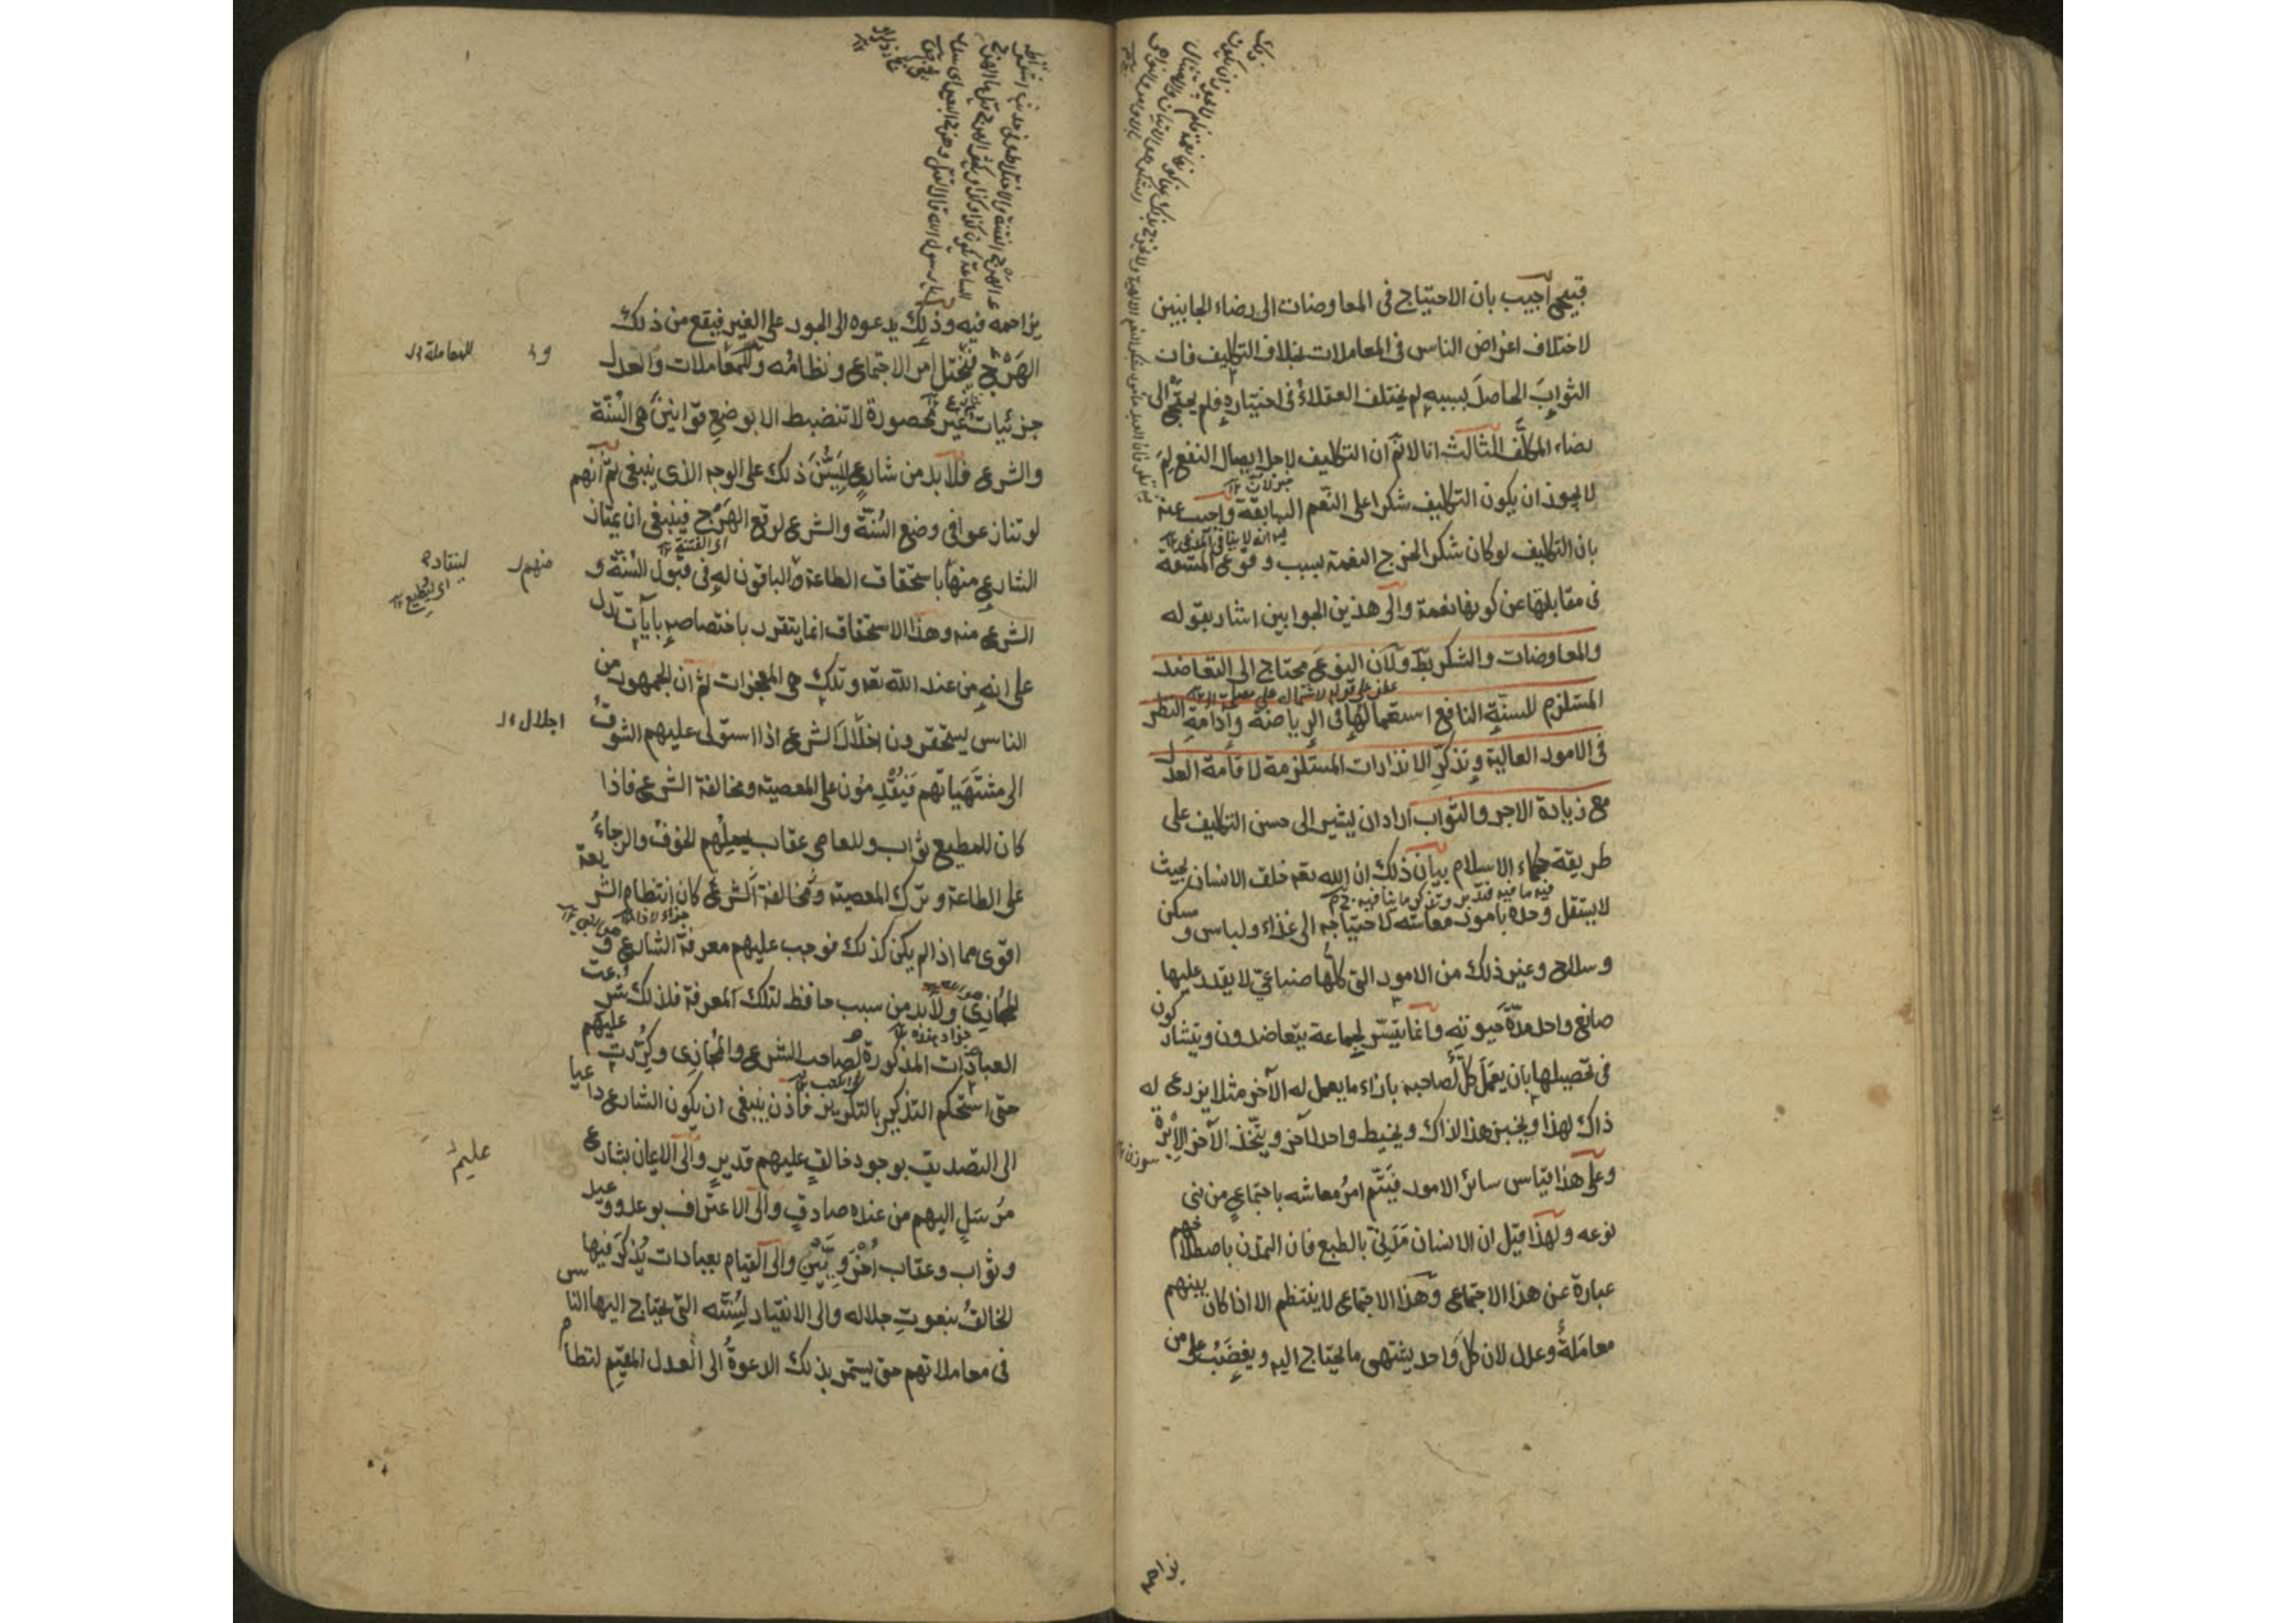 قبيح أجيب بان الاحتياج فى المعاوضات الى رضاء الجانبين
لاختلاف اغراض الناس فى المعاملات بخلاف التكليف فان
الثوابَ الحاصلَ بسببه لم يختلف العقلاءُ فى اختياره فلم يحتج الى
رضاء المكلَّف الثالث انا لانم ان التكليف لاجل ايصال النفع لِمَ
لايجوز ان يكون التكليف شكرا على النِّعَم السابقة واجيب عنه
بان التكليف لو كان شكرا لخرج النعمة بسبب وقوع المشقة
فى مقابلتها عن كونها نعمة والى هذين الجوابين اشار بقوله
والمعاوضات والشكر بط ولان النوع محتاج الى التعاضد
المستلزم للسنةِ النافعِ استعمالُها فى الرياضة وادامةِ النظر
فى الامور العالية وتذكّرِ الانذارات المستلزمة لاقامة العدل
مع زيادة الاجر والثواب اراد ان يشير الى حسن التكليف على
طريقة حكماء الاسلام بيان ذلك ان الله تعه خلق الانسان بحيث
لايستقل وحده بامور معاشه لاحتياجه الى غذاء ولباس ومسكن
وسلاح وغير ذلك من الامور التى كلُّها صناعيّ لايقدر عليها
صانع واحد مدّةَ حيوته وانما يتيسّر لجماعة يتعاضدون ويتشاركون
فى تحصيلها بان يعمَلَ كلٌّ لصاحبه بازاء ما يعمل له الآخر مثلا يزرع له
ذاك لهذا ويخبز هذا لذاك ويخيط واحد لآخر ويتّخذ الآخر الإبرة
وعلى هذا قياس سائر الامور فيَتّم امرُ معاشه باجتماعٍ من بنى
نوعه ولهذا قيل ان الانسان مَدَنِيّ بالطبع فان التمدّن باصطلاحهم
عبارة عن هذا الاجتماع وهذا الاجتماع لاينتظم الا اذا كان بينهم
معاملةٌ وعدل لان كلّ واحد يشتهى ما يحتاج اليه ويغضَبُ على من
يزاحمه
يزاحمه فيه وذلك يدعوه الى الجور على الغير فيقع من ذلك
الهَرْج فيختل امر الاجتماع ونظامُه وللمعاملات والعدل
جزئيات غير محصورة لاتنضبط الا بوضع قوانينَ هى السُنّة
والشرع فلا بد من شارعٍ ليَسُنَّ ذلك على الوجه الذى ينبغى ثمّ انهم
لو تنازعوا فى وضع السُنّة والشرع لوقع الهَرْج فينبغى ان يمتاز
الشارع منها باستحقاق الطاعة والباقون له فى قبول السُنّة و
الشرع منه وهذا الاستحقاق انما يتقرر باختصاصه بآيات تدل
على انه من عند الله تعه وتلك هى المعجزات ثم ان الجمهور من
الناس يستحقرون اختلال الشرع اذا استولى عليهم الشوقُ
الى مشتَهَياتهم فيُقدِمُون على المعصية ومخالفة الشرع فاذا
كان للمطيع ثواب وللعاصى عقاب يحملهم الخوفُ والرجاءُ
على الطاعة وترك المعصية ومخالفة الشرع كان انتظام الشريعة
اقوى مما اذا لم يكن كذلك فوجب عليهم معرفة الشارع و
المجازى ولا بد من سبب حافظ لتلك المعرفة فلذلك شرعت
العبادات المذكورة لصاحب الشرع والمجازى وكُرِّرت عليهم
حتى استحكم التذكير بالتكرير فاذن ينبغى ان يكون الشارع داعيا
الى التصديق بوجود خالقٍ عليهم قدير والى الايمان بشارع
مُرسَلٍ اليهم من عنده صادقٍ والى الاعتراف بوعد ووعيد
وثواب وعقاب أخرَوِيَّيْنِ والى القيام بعبادات يُذكَر فيها
الخالقُ بنعوتِ جلاله والى الانقياد لسُنّته التى يحتاج اليها الناس
فى معاملاتهم حتى يستمر بذلك الدعوةُ الى العدل المقيم لنظام
للمعاملة
منهم
لينقاد
اجلال
عليم